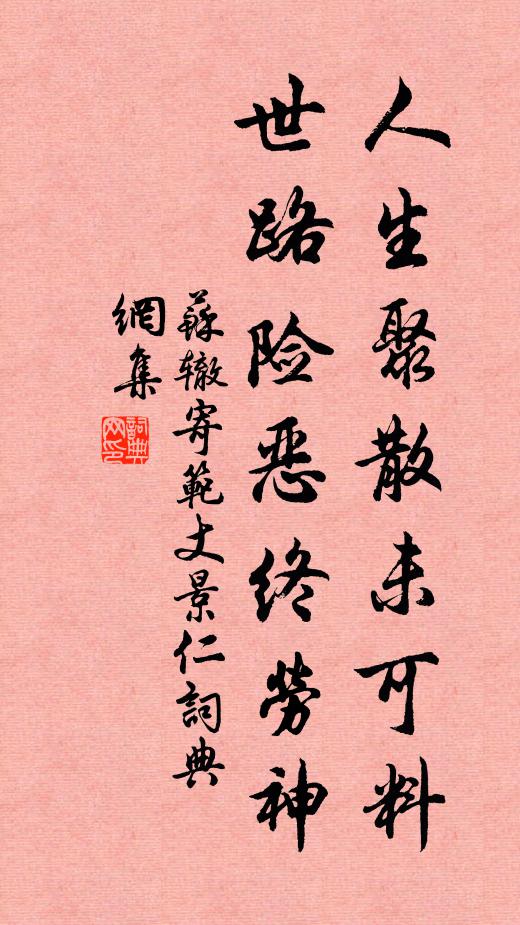 人生聚散未可料
世路险恶终劳神
蘇辙寄範丈景仁詞典
網集
詞典網印